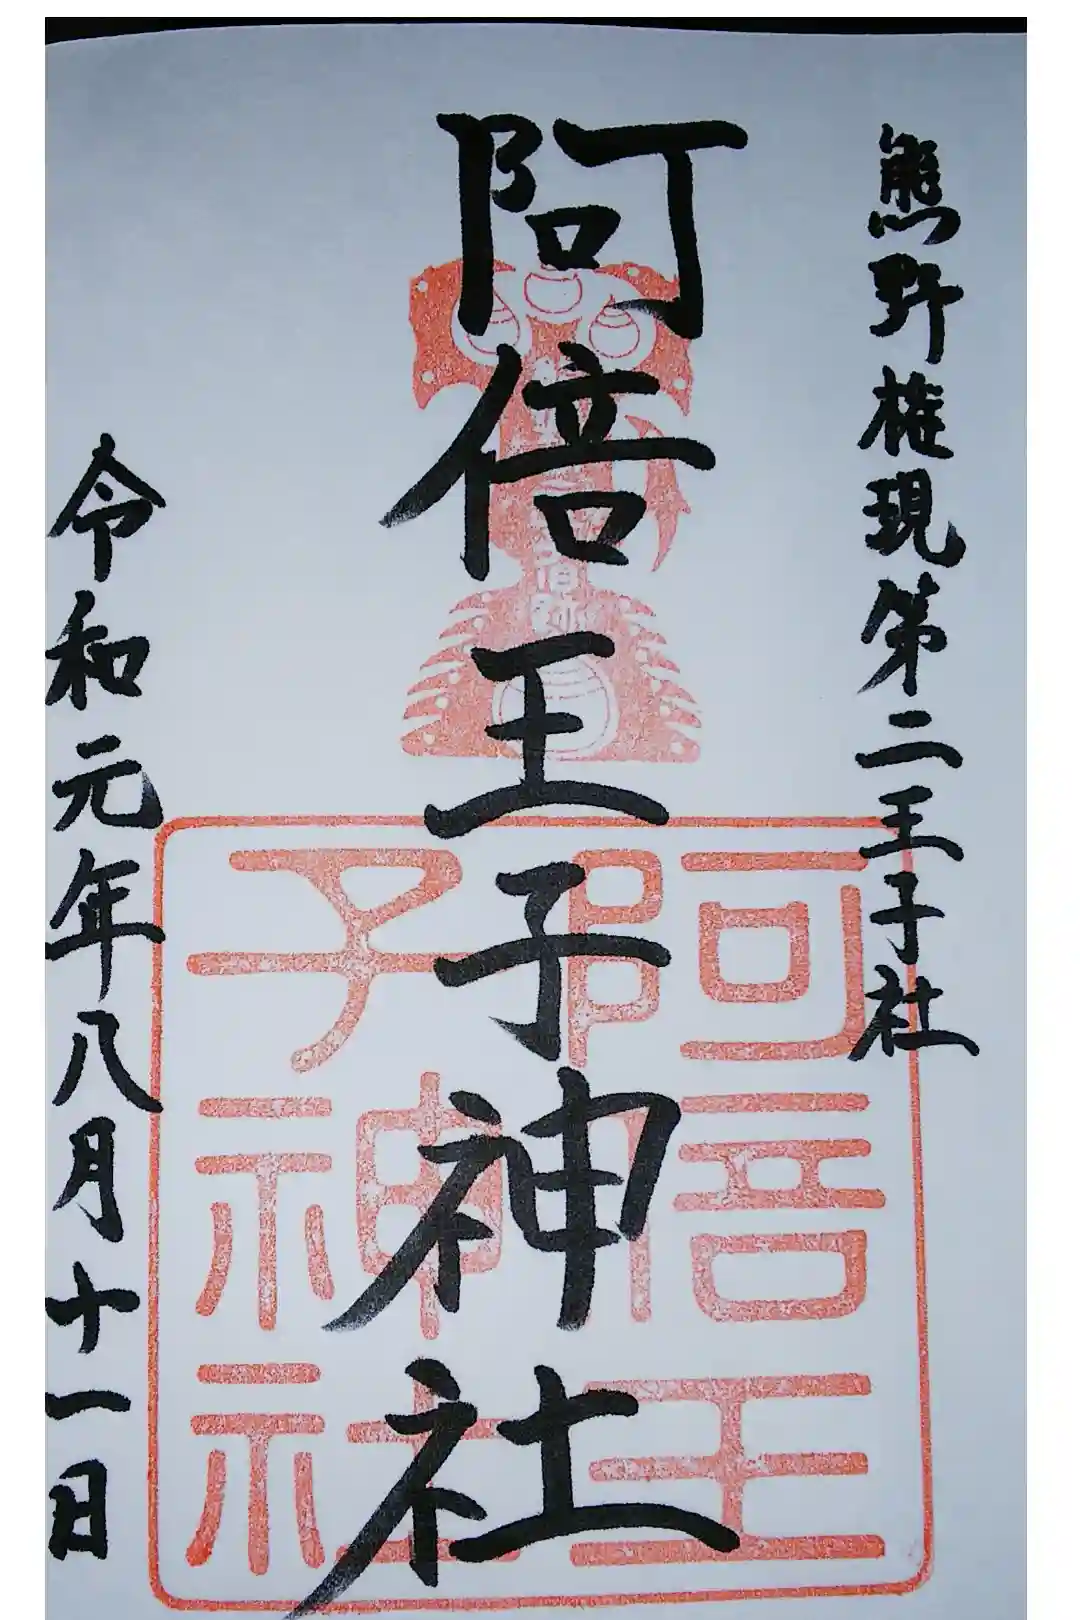 熊野権現第二王子社
阿倍王子神社
令和元年八月十一日
阿倍王
子神社